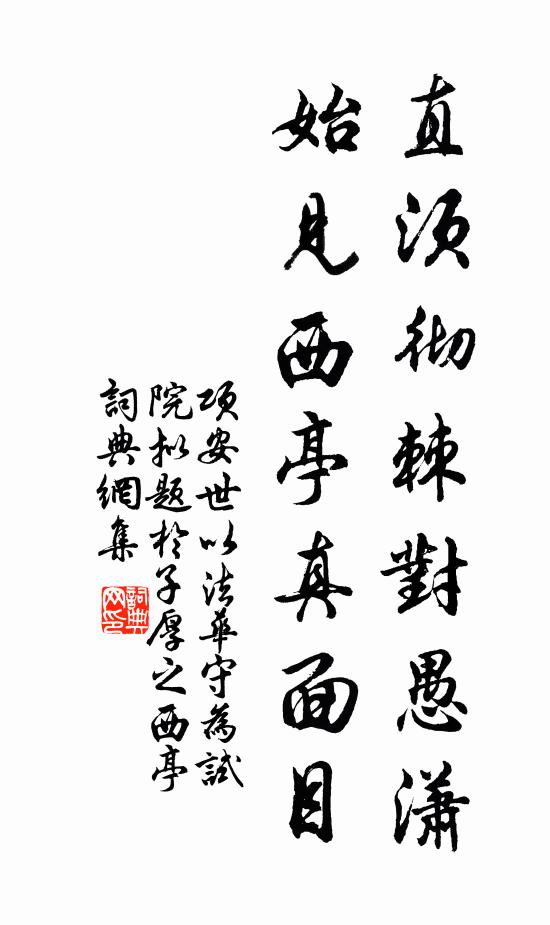 直須彻棘對愚瀟
始見西亭真面目
项安世以法華守為試
院拟题於子厚之西亭
詞典網集
詞典網印